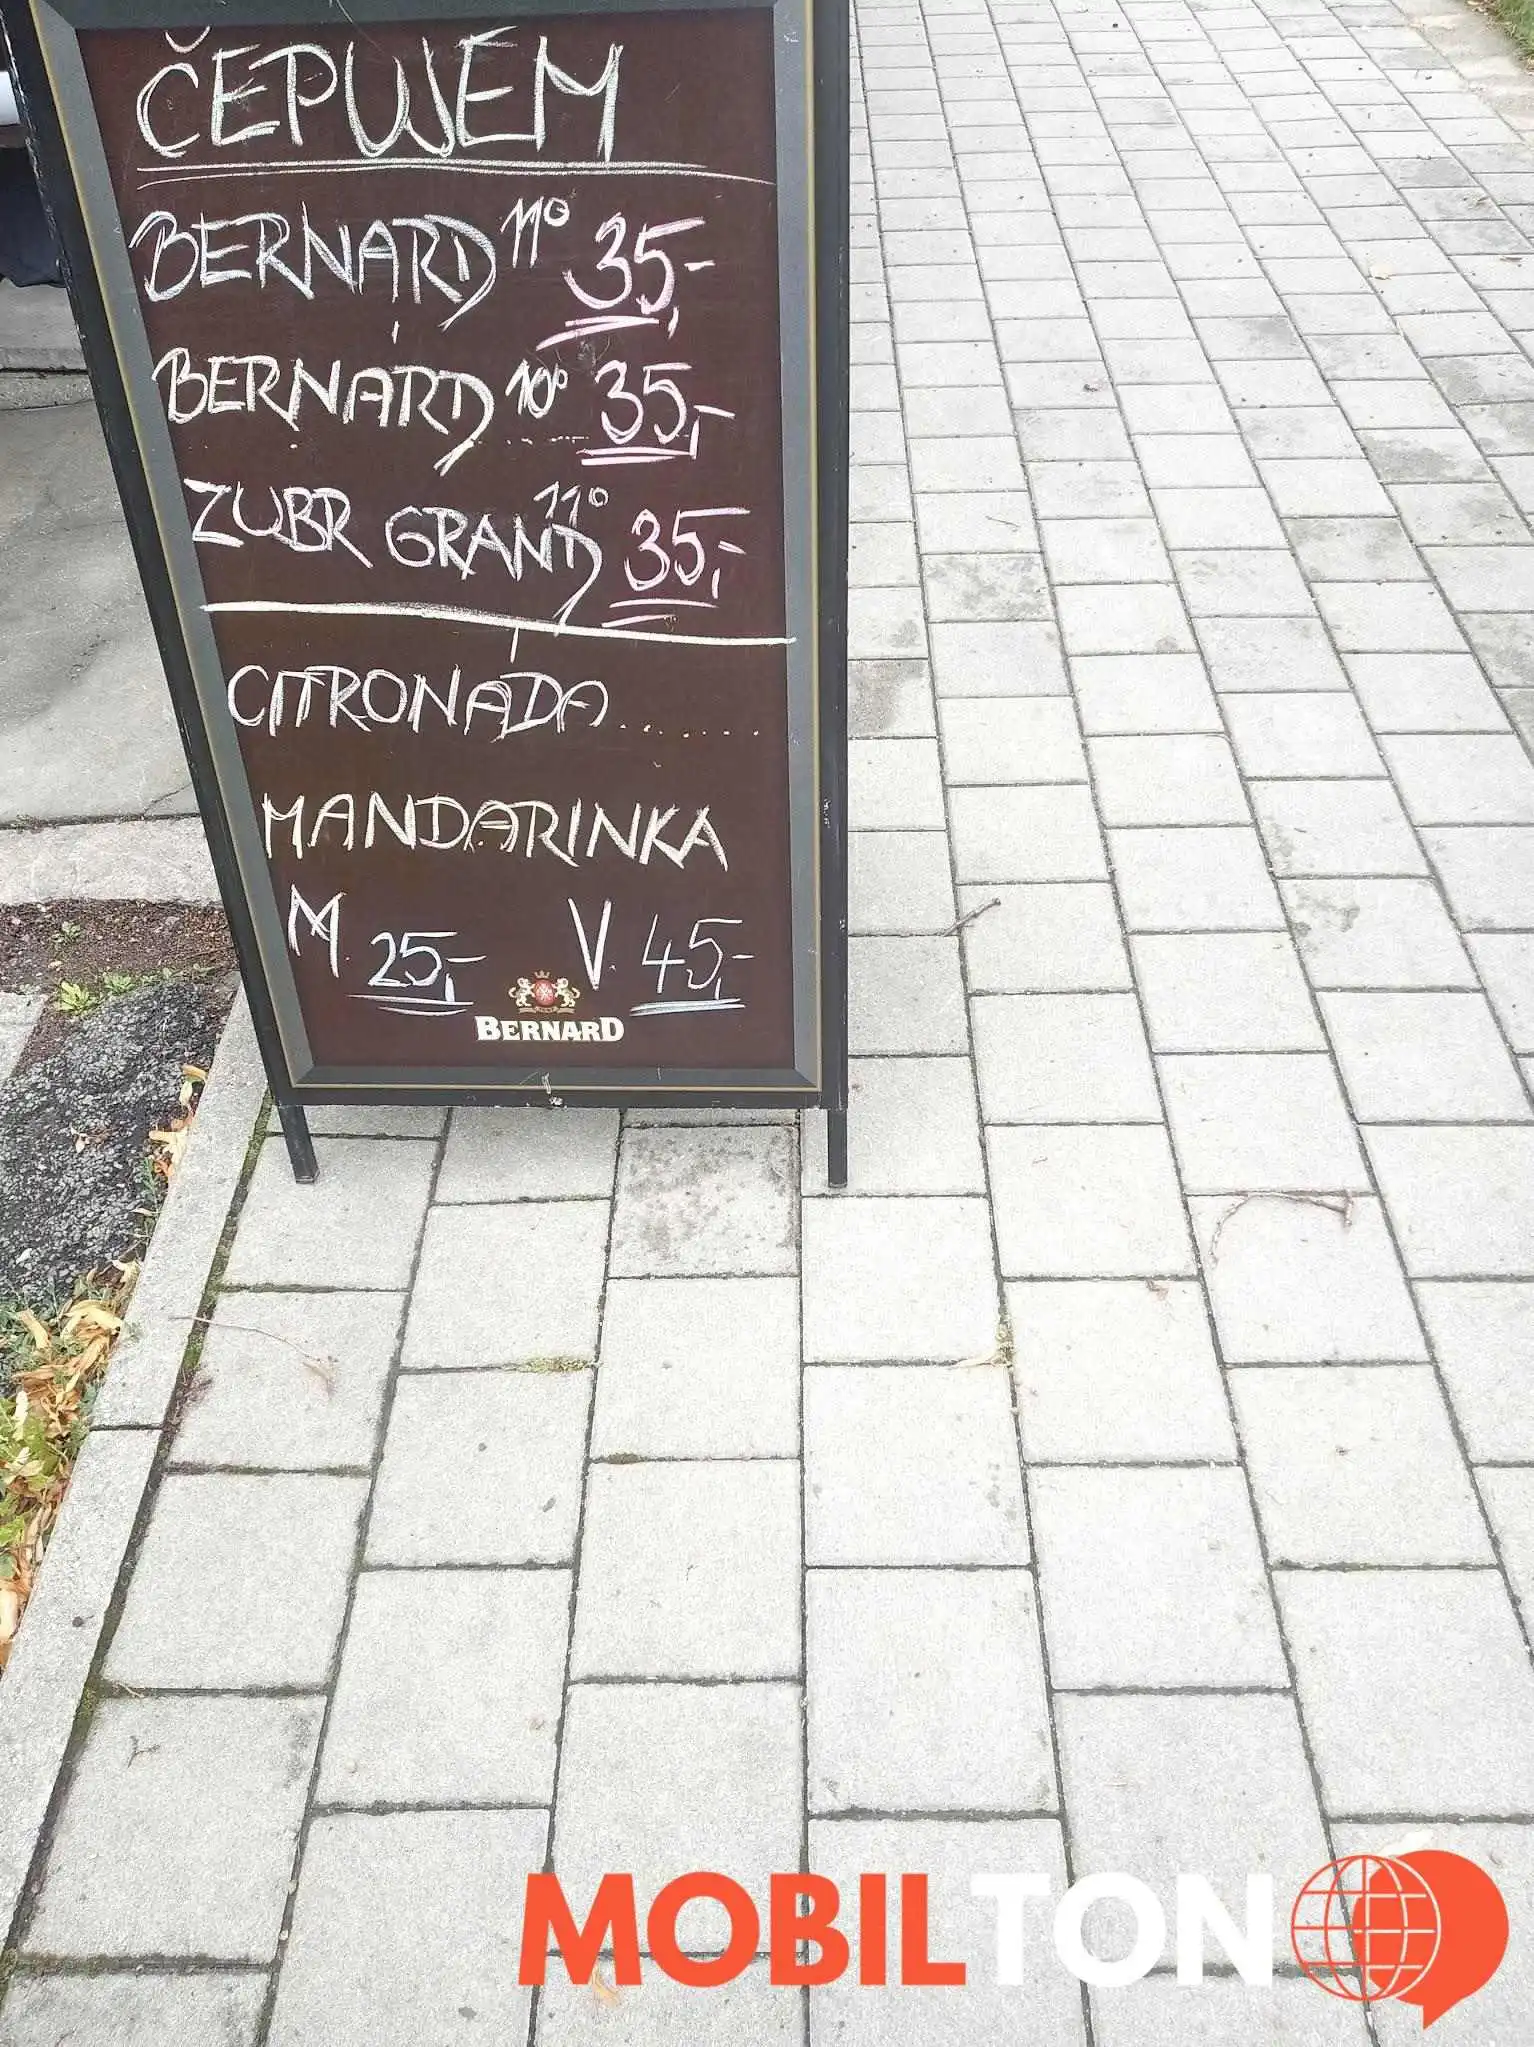 ČEPUJEM
BERNARD 11° 35,-
BERNARD 10° 35,-
ZUBR GRAND 11° 35,-
CITRONADA.......
MANDARINKA
M. 25,- V. 45,-
BERNARD
MOBILTON